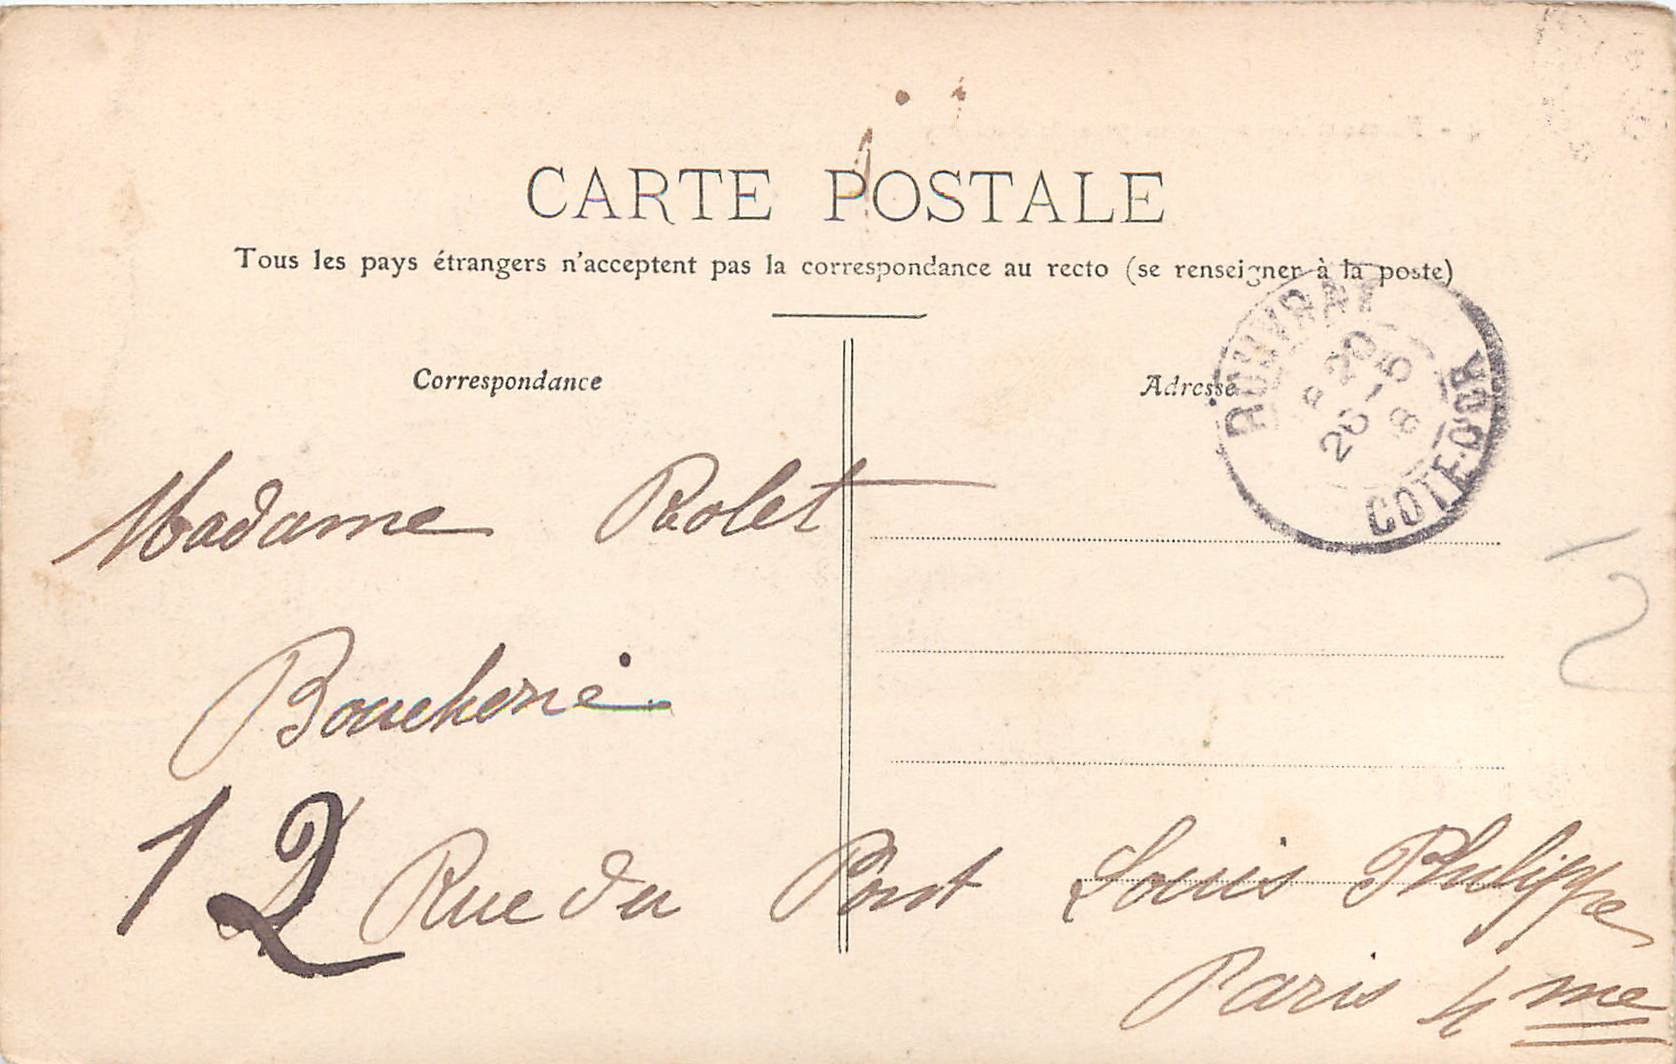 CARTE POSTALE
Tous les pays étrangers n'acceptent pas la correspondance au recto (se renseigner à la poste)
Correspondance
Adresse
ROUVRAY
20
26 - 5
8
COTE-D'OR
Madame Rolet
Boucherie
12 Rue du Pont Louis Philippe
Paris 4me